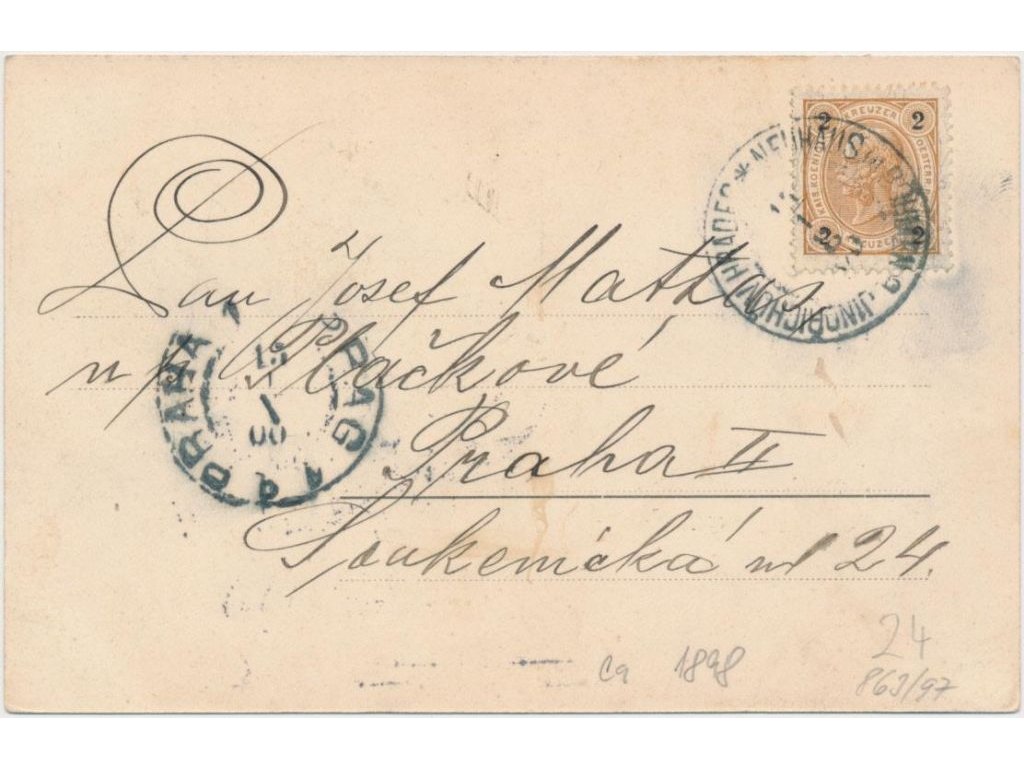 2 KREUZER 2
KAIS. KOENIGL. OESTERR.
2 KREUZER 2
NEUHAUS in BÖHMEN
JINDŘICHŮV HRADEC
Pan Josef Mathis
u p. Plačkové
Praha II
Soukenická ul 24.
PRAG 1
PRAHA 1
15
1
00
24
ca 1898
863/97